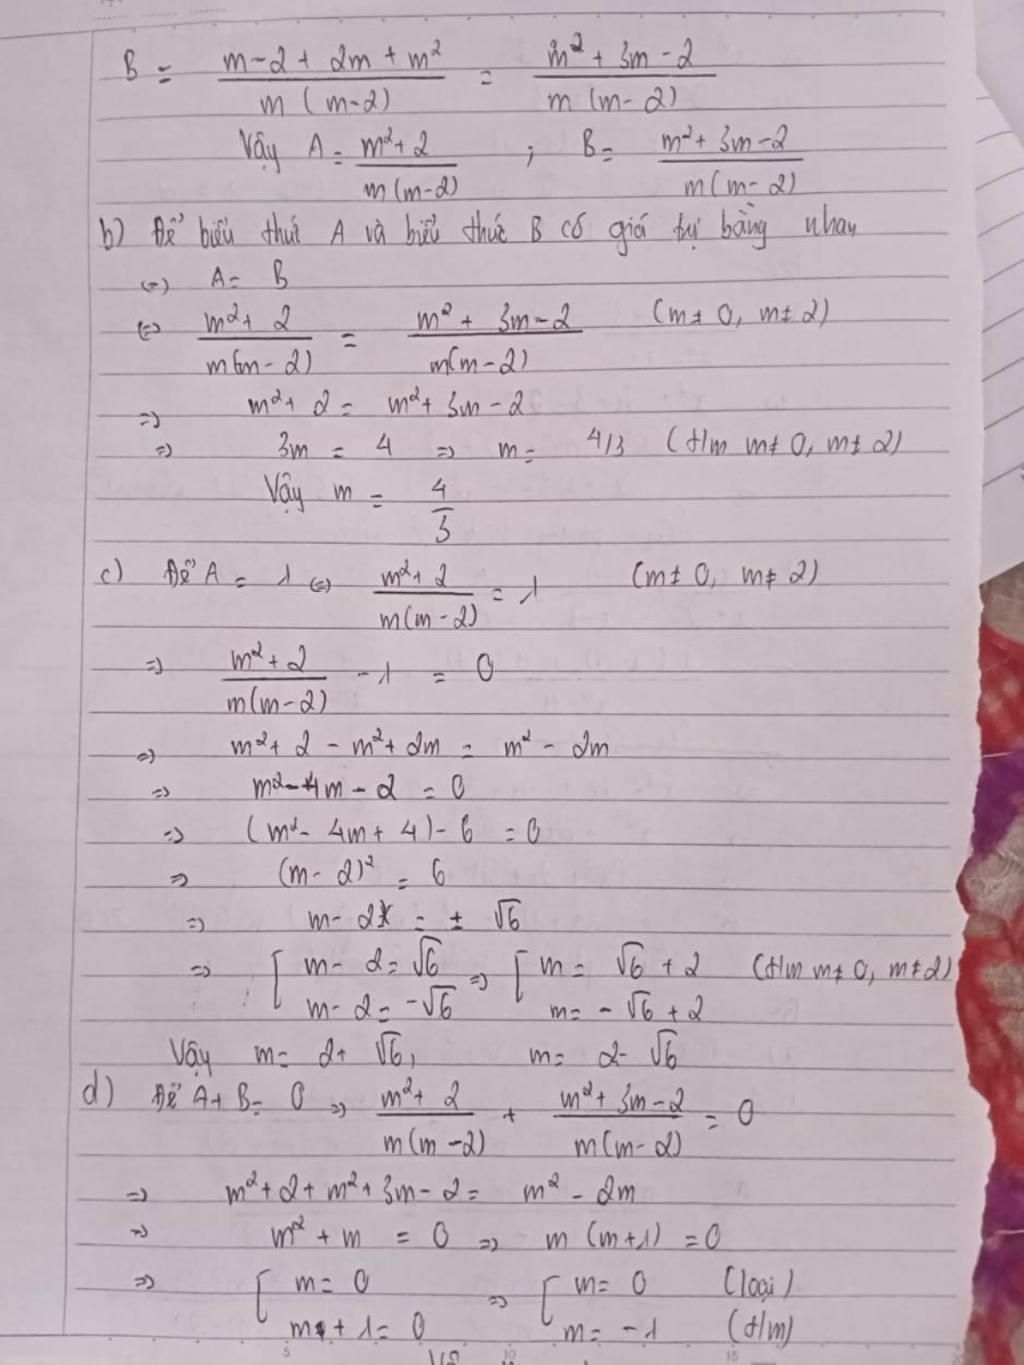 B = (m-2+2m+m²)/(m(m-2)) = (m²+3m-2)/(m(m-2))
Vậy A = (m²+2)/(m(m-2)) ; B = (m²+3m-2)/(m(m-2))
b) Để biểu thức A và biểu thức B có giá trị bằng nhau
(=) A = B
(=) (m²+2)/(m(m-2)) = (m²+3m-2)/(m(m-2)) (m≠0, m≠2)
=> m²+2 = m²+3m-2
=> 3m = 4 => m = 4/3 (t/m m≠0, m≠2)
Vậy m = 4/3
c) Để A = 1 (=) (m²+2)/(m(m-2)) = 1 (m≠0, m≠2)
=> (m²+2)/(m(m-2)) - 1 = 0
=> m²+2-m²+2m = m²-2m
=> m²-4m-2 = 0
=> (m²-4m+4)-6 = 0
=> (m-2)² = 6
=> m-2 = ±√6
=> [ m-2 = √6 => [ m = √6+2 (t/m m≠0, m≠2)
m-2 = -√6 m = -√6+2
Vậy m = 2+√6, m = 2-√6
d) Để A+B = 0 => (m²+2)/(m(m-2)) + (m²+3m-2)/(m(m-2)) = 0
=> m²+2+m²+3m-2 = m²-2m
=> m²+m = 0 => m(m+1) = 0
=> [ m = 0 => [ m = 0 (loại)
m+1 = 0 m = -1 (t/m)
5 10 15